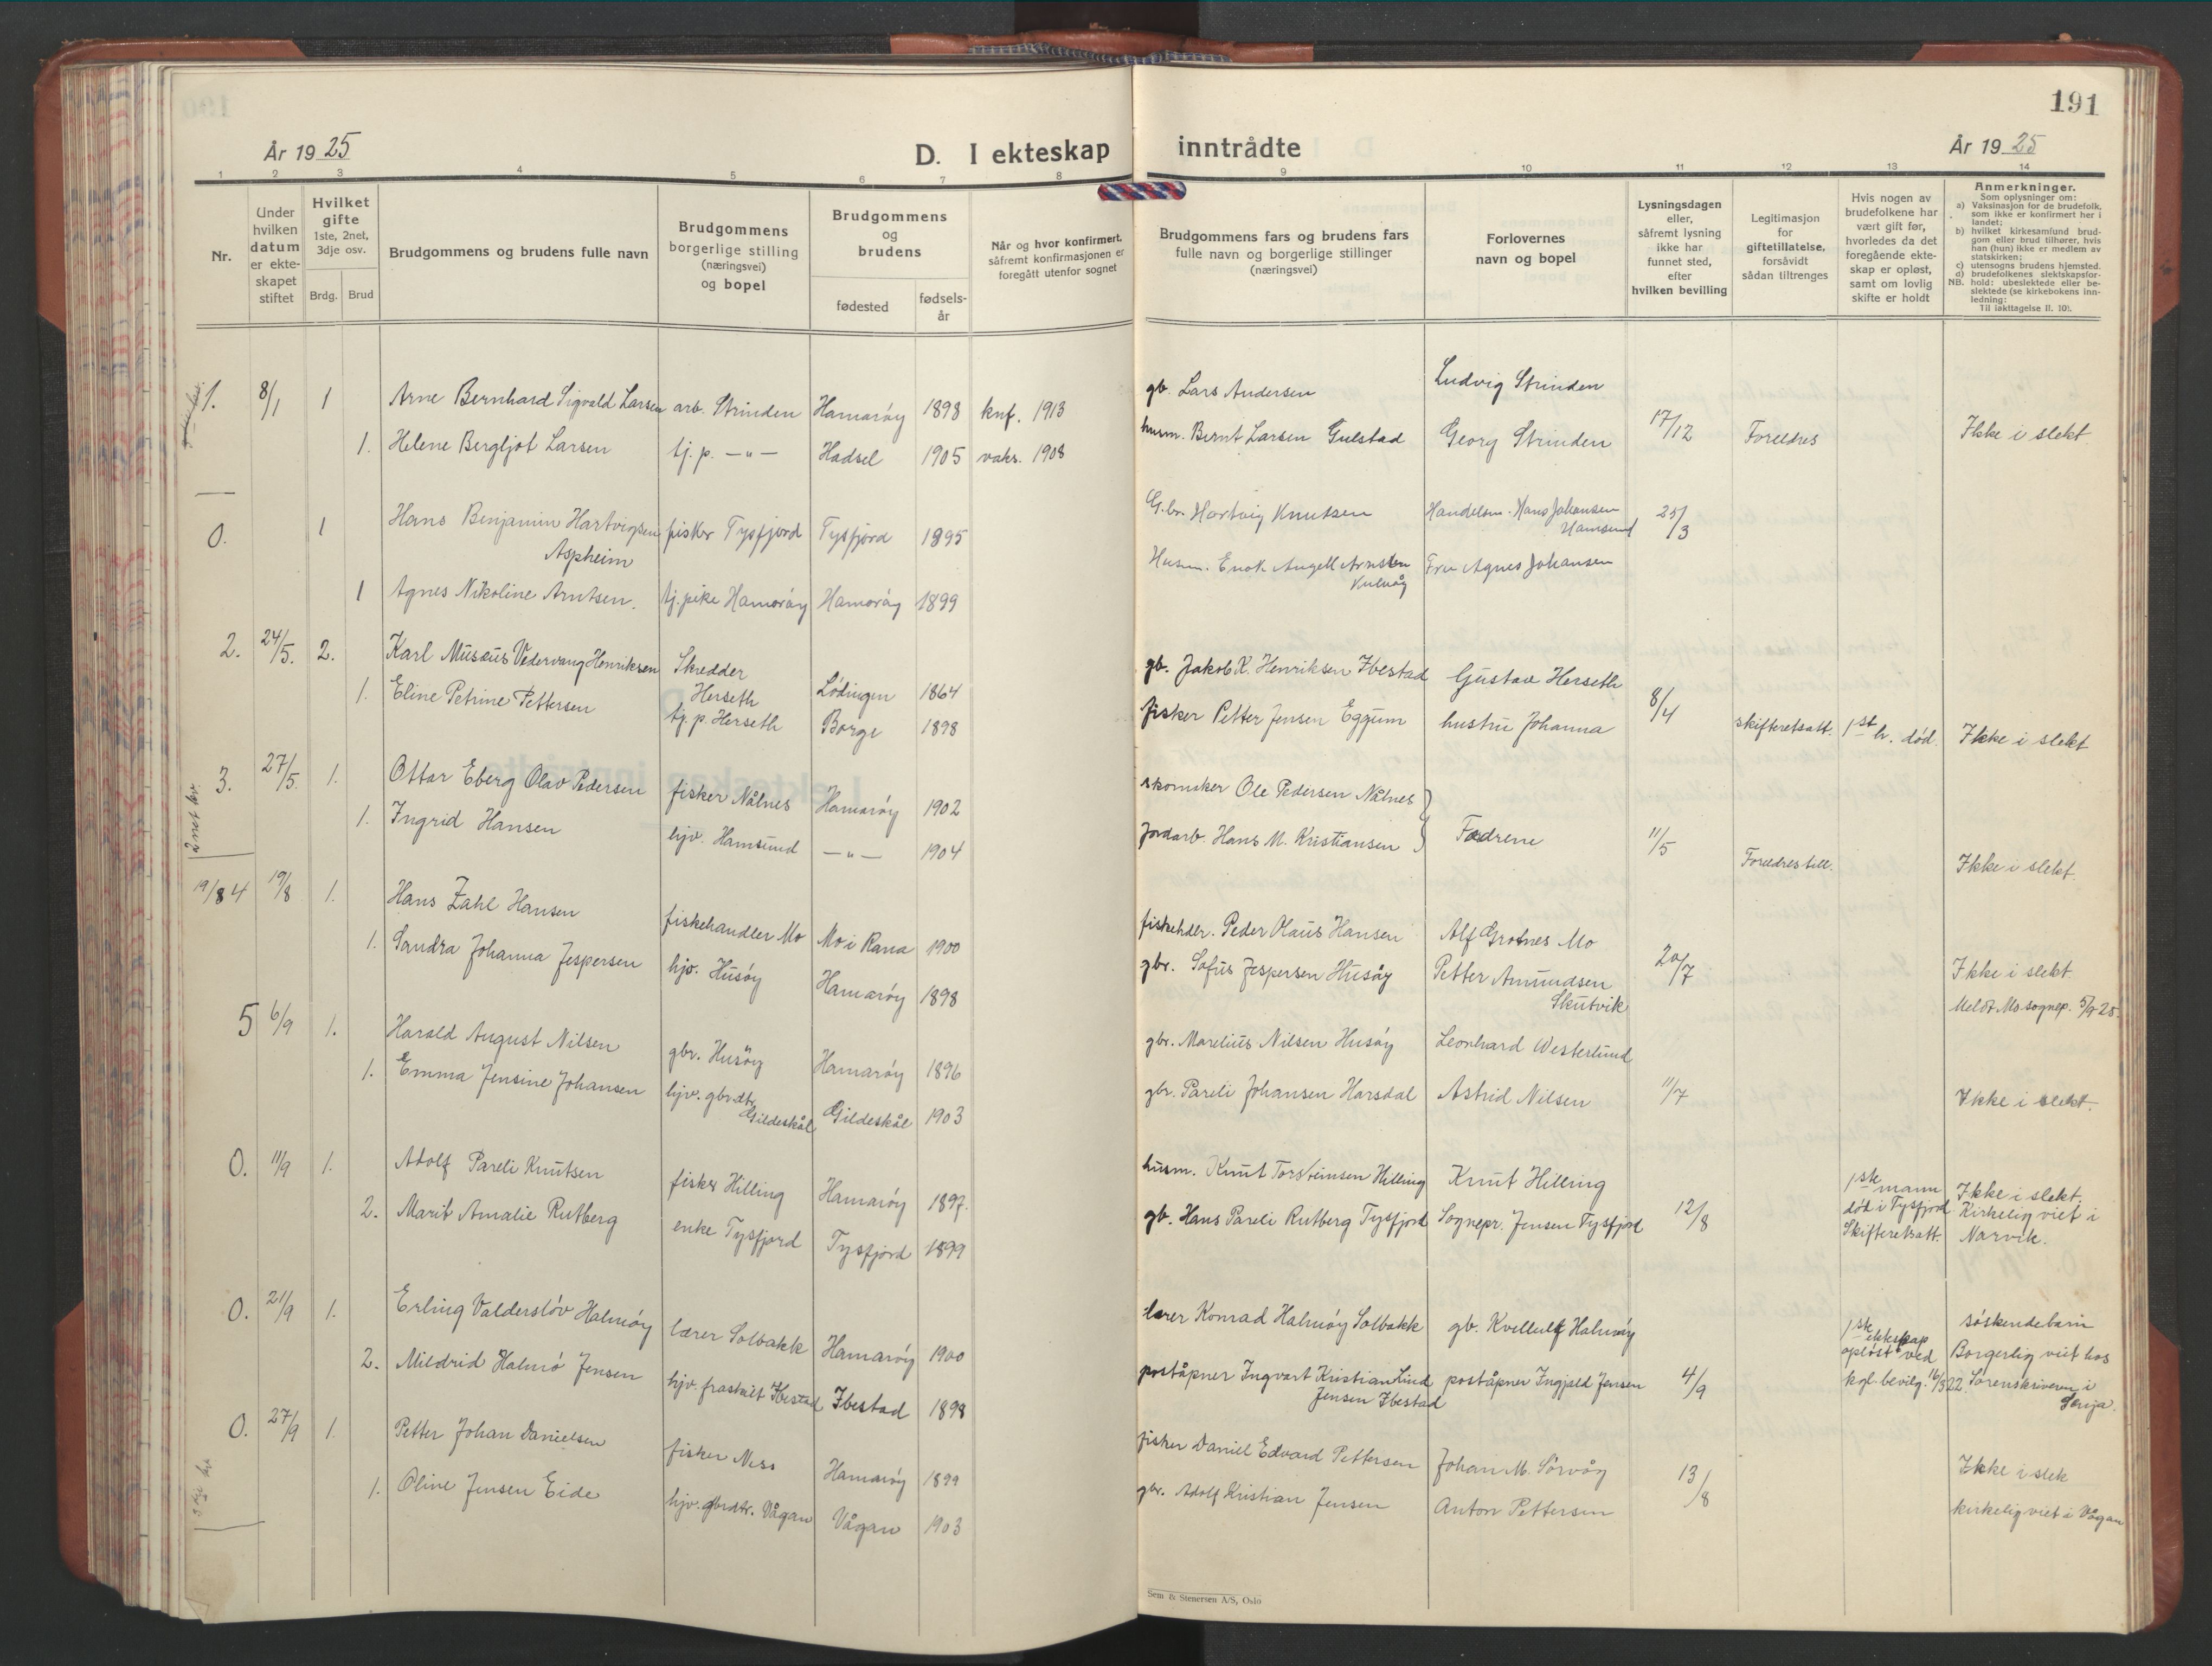 191
År 19 25
D. I ekteskap inntrådte
År 19 25
1 2 3 4 5 6 7 8 9 10 11 12 13 14
Nr.
Under hvilken datum er ekteskapet stiftet
Hvilket gifte 1ste, 2net, 3dje osv.
Brdg. Brud
Brudgommens og brudens fulle navn
Brudgommens borgerlige stilling (næringsvei) og bopel
Brudgommens og brudens
fødested
fødsels-år
Når og hvor konfirmert, såfremt konfirmasjonen er foregått utenfor sognet
Brudgommens fars og brudens fars fulle navn og borgerlige stillinger (næringsvei)
Forlovernes navn og bopel
Lysningsdagen eller, såfremt lysning ikke har funnet sted, efter hvilken bevilling
Legitimasjon for giftetillatelse, forsåvidt sådan tiltrenges
Hvis nogen av brudefolkene har vært gift før, hvorledes da det foregående ekteskap er opløst, samt om lovlig skifte er holdt
Anmerkninger.
Som oplysninger om:
a) Vaksinasjon for de brudefolk, som ikke er konfirmert her i landet;
b) hvilket kirkesamfund brudgom eller brud tilhører, hvis han (hun) ikke er medlem av statskirken;
c) utensogns brudens hjemsted.
d) brudefolkenes slektskapsforhold: ubeslektede eller beslektede (se kirkebokens innledning:
NB. Til iakttagelse II. 10).
1. 8/1 1 Arne Bernhard Sigvald Larsen arb. Strinden Hamarøy 1898 knf. 1913 gb. Lars Andersen Ludvig Strinden
1. Helene Bergljot Larsen tj.p. —"— Hadsel 1905 vaks. 1908 husm. Bernt Larsen Gulstad Georg Strinden 17/12 Foreldres Ikke i slekt
0. 1 Hans Benjamin Hartvigsen Aspheim fisker Tysfjord Tysfjord 1895 G.br. Hartvig Knutsen Handelsm. Hans Johansen Hamsund 25/3
1 Agnes Nikoline Arntsen. tj.pike Hamarøy Hamarøy 1899 Husm. Enok Angell Arntsen Fru Agnes Johansen
2. 24/5. 2. Karl Musæus Vedervang Henriksen Skredder Herseth Lødingen 1864 gb. Jakob K. Henriksen Ibestad Gustav Herseth
1. Eline Petrine Pettersen tj.p. Herseth Borge 1898 fisker Petter Jensen Eggum hustru Johanna 8/4 skifteretsatt. 1st h. død. Ikke i slekt
3. 27/5. 1. Ottar Eberg Olav Pedersen fisker Nålnes Hamarøy 1902 skomaker Ole Pedersen Nålnes
2 net kv.
1. Ingrid Hansen hjv. Hamsund —"— 1904 Jordarb. Hans M. Kristiansen Fædrene 11/5 Foreldres till. Ikke i slekt.
19/8 4 19/8 1. Hans Zahl Hansen fiskehandler Mo Mo i Rana 1900 fiskehdlr. Peder Olaus Hansen Alf Grotnes Mo
1. Sandra Johanna Jespersen hjv. Husøy Hamarøy 1898 gbr. Sofus Jespersen Husøy Petter Amundsen Skutvik 20/7 Ikke i slekt
Meldt Mo sognep. 5/9 25.
5 6/9 1. Harald August Nilsen gbr. Husøy Hamarøy 1896 gbr. Marelius Nilsen Husøy Leonhard Westerlund
1. Emma Jensine Johansen hjv. gbr.dtr. Gildeskål Gildeskål 1903 gbr. Pareli Johansen Harsdal Astrid Nilsen 11/7 Ikke i slekt.
0. 11/9 1. Adolf Pareli Knutsen fisker Hilling Hamarøy 1897. husm. Knut Torsteinsen Hilling Knut Hilling
2. Marit Amalie Rutberg enke Tysfjord Tysfjord 1899 gb. Hans Pareli Rutberg Tysfjord Sognepr. Jensen Tysfjord 12/8 1ste mann død i Tysfjord Skifteretsatt. Ikke i slekt. Kirkelig viet i Narvik.
0. 21/9 1. Erling Valdersløv Halmøy lærer Solbakk Hamarøy 1900 lærer Konrad Halmøy Solbakk gb. Kvellulf Halmøy
2. Mildrid Halmø Jensen hjv. fraskilt Ibestad Ibestad 1898 poståpner Ingvart Kristian Lind Jensen Ibestad poståpner Ingjald Jensen 4/9 1ste ekteskap opløst ved kgl. bevilg. 16/3 22. søskendebarn Borgerlig viet hos Sorenskriveren i Senja.
0. 27/9 1. Petter Johan Danielsen fisker Ness Hamarøy 1899 fisker Daniel Edvard Pettersen Johan M. Sørvåg
1. Oline Jensen Eide hjv. gbrdtr. Vågan Vågan 1903 gbr. Adolf Kristian Jensen Anton Pettersen 13/8 Ikke i slek
kirkelig viet i Vågan
Sem & Stenersen A/S, Oslo